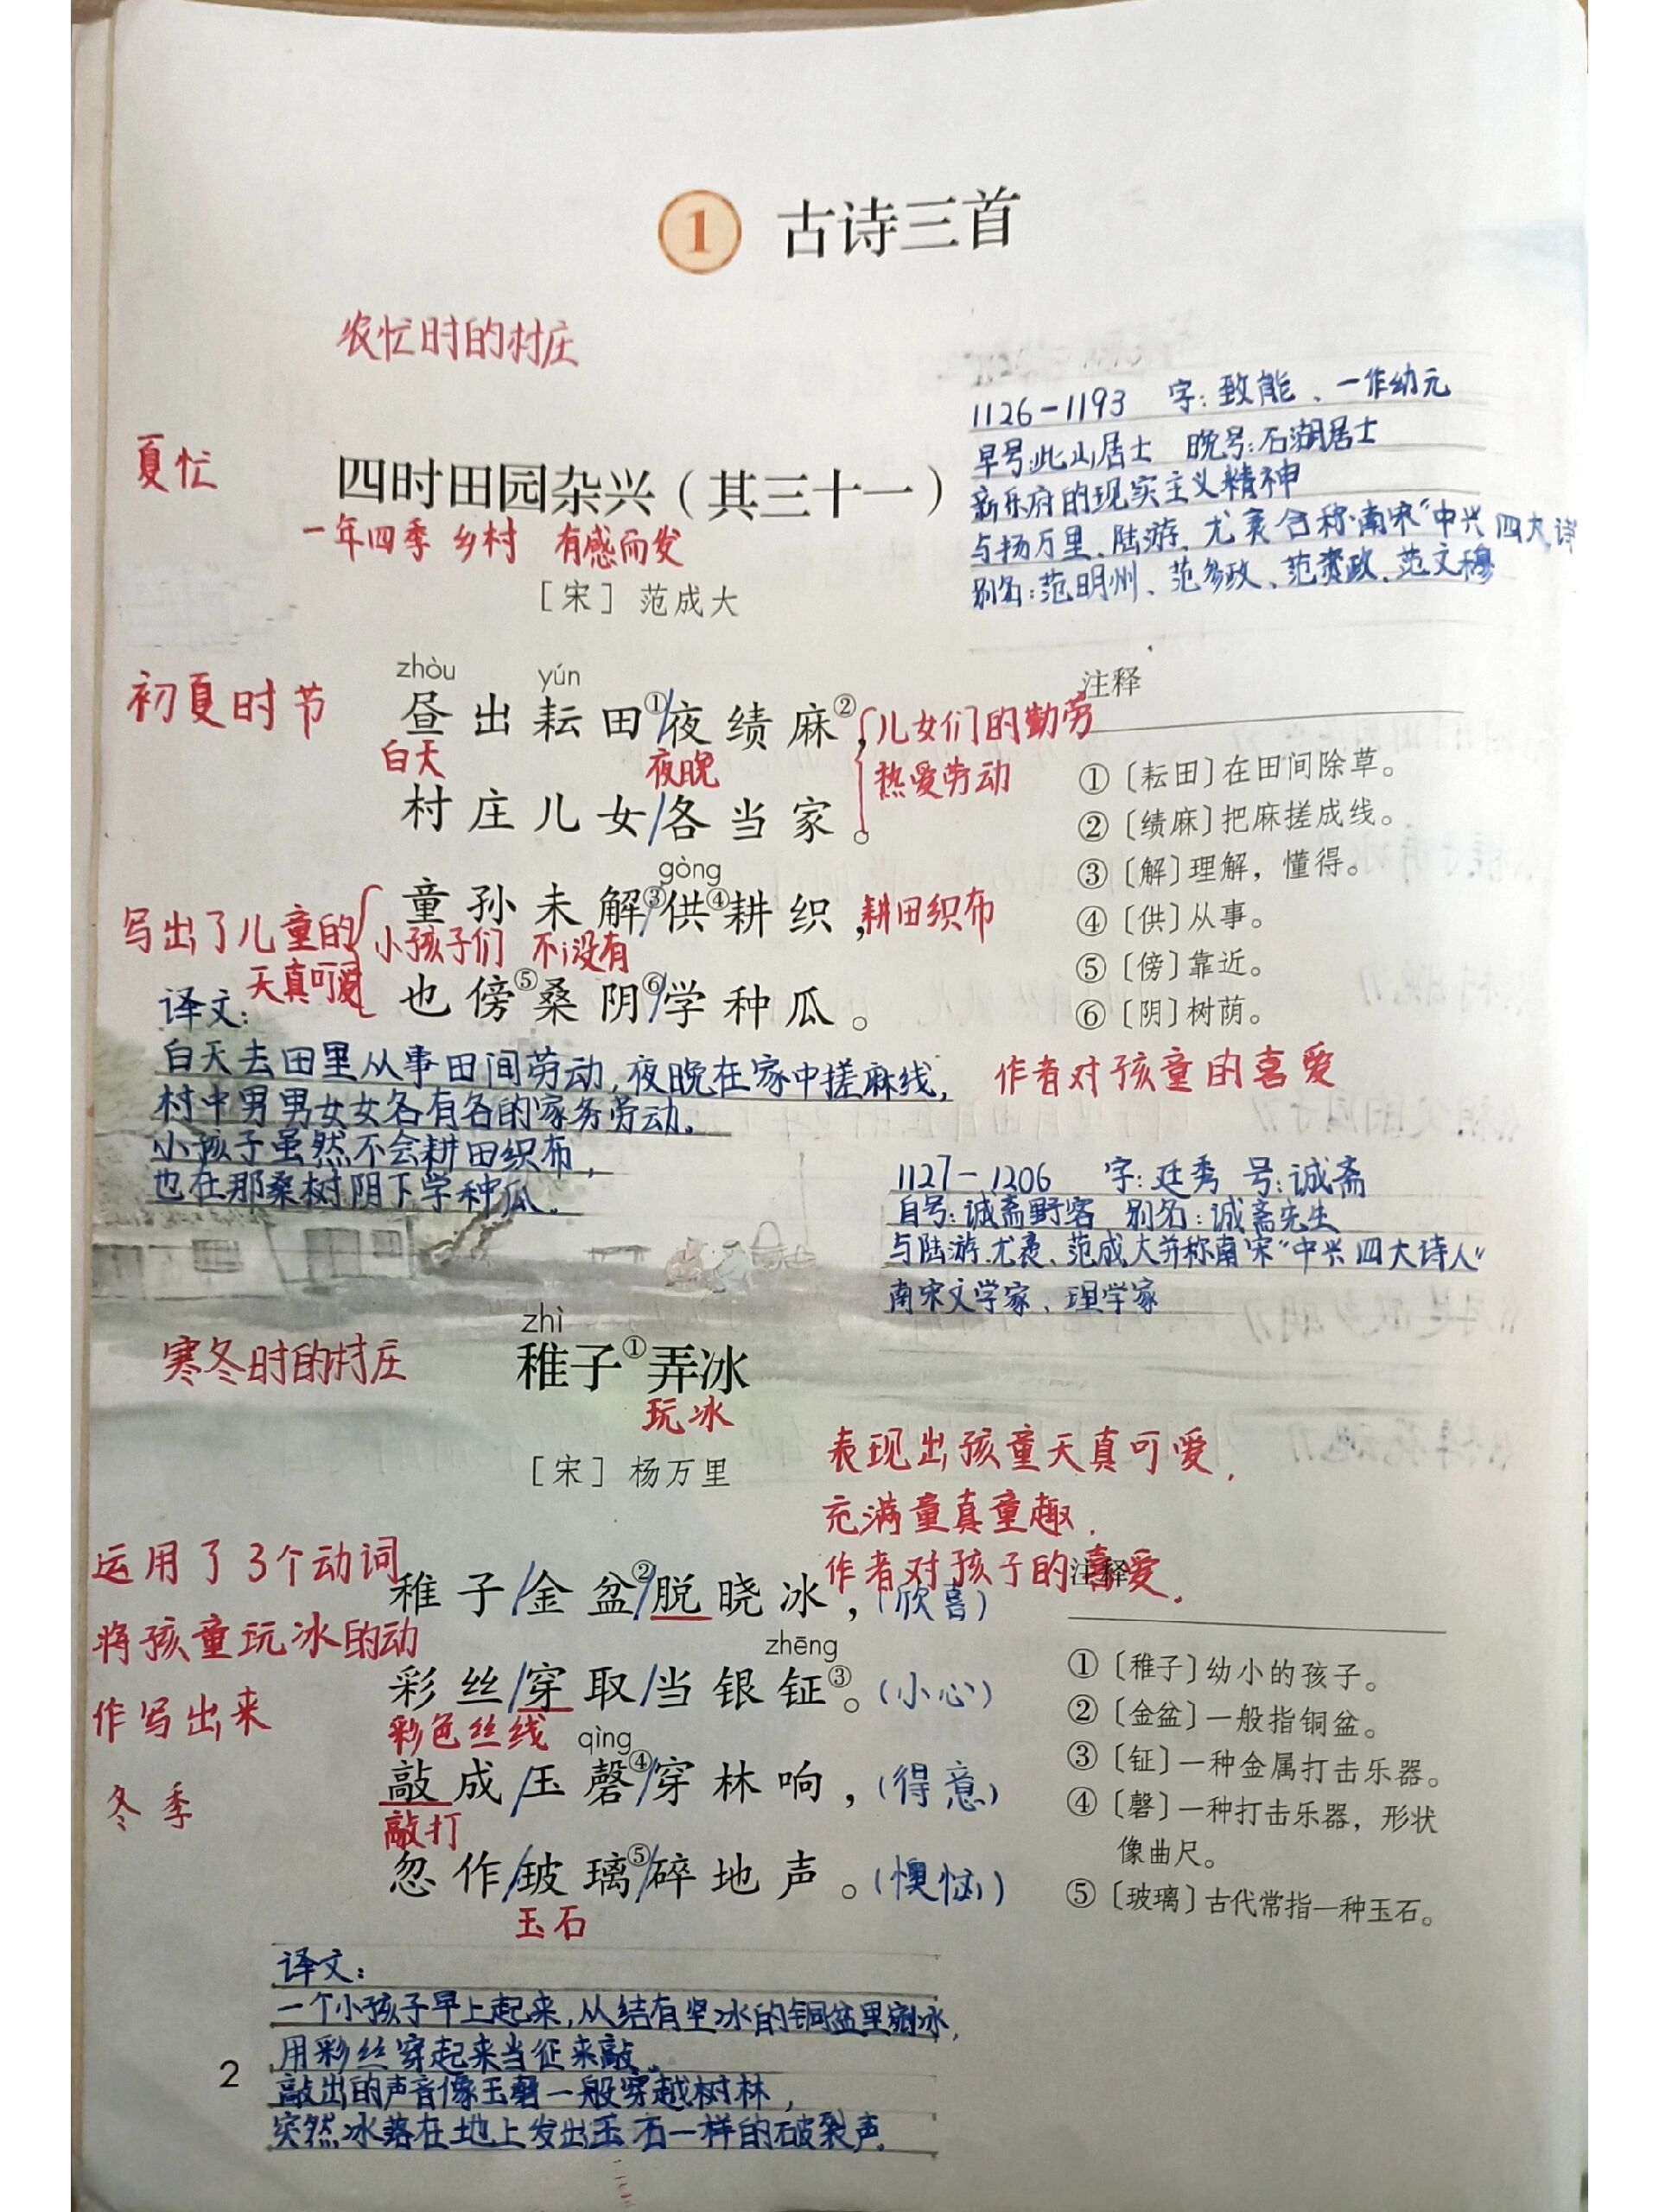 1 古诗三首
农忙时的村庄
1126-1193 字:致能、一作幼元
早号:此山居士 晚号:石湖居士
新乐府的现实主义精神
与杨万里、陆游、尤袤合称南宋“中兴四大诗
别名:范明州、范参政、范资政、范文穆
夏忙
四时田园杂兴(其三十一)
一年四季 乡村 有感而发
[宋] 范成大
初夏时节
zhòu yún
昼出耘田①/夜绩麻②,
白天 夜晚
儿女们的勤劳
热爱劳动
村庄儿女/各当家。
gòng
童孙未解③/供④耕织,耕田织布
写出了儿童的
天真可爱
小孩子们 不 没有
也傍⑤桑阴⑥/学种瓜。
注释
①〔耘田〕在田间除草。
②〔绩麻〕把麻搓成线。
③〔解〕理解,懂得。
④〔供〕从事。
⑤〔傍〕靠近。
⑥〔阴〕树荫。
译文:
白天去田里从事田间劳动,夜晚在家中搓麻线,
村中男男女女各有各的家务劳动。
小孩子虽然不会耕田织布,
也在那桑树阴下学种瓜。
作者对孩童的喜爱
1127-1206 字:廷秀 号:诚斋
自号:诚斋野客 别名:诚斋先生
与陆游、尤袤、范成大并称南宋“中兴四大诗人”
南宋文学家、理学家
寒冬时的村庄
zhì
稚子①弄冰
玩冰
[宋] 杨万里
表现出孩童天真可爱,
充满童真童趣.
作者对孩子的喜爱.
运用了3个动词
将孩童玩冰的动
作写出来
冬季
稚子/金盆②/脱晓冰,(欣喜)
zhēng
彩丝/穿取/当银钲③。(小心)
彩色丝线
qìng
敲成/玉磬④/穿林响,(得意)
敲打
忽作/玻璃⑤/碎地声。(懊恼)
玉石
注释
①〔稚子〕幼小的孩子。
②〔金盆〕一般指铜盆。
③〔钲〕一种金属打击乐器。
④〔磬〕一种打击乐器,形状
像曲尺。
⑤〔玻璃〕古代常指一种玉石。
译文:
一个小孩子早上起来,从结有坚冰的铜盆里剜冰,
用彩丝穿起来当征来敲。
敲出的声音像玉磬一般穿越树林,
突然冰落在地上发出玉石一样的破裂声.
2